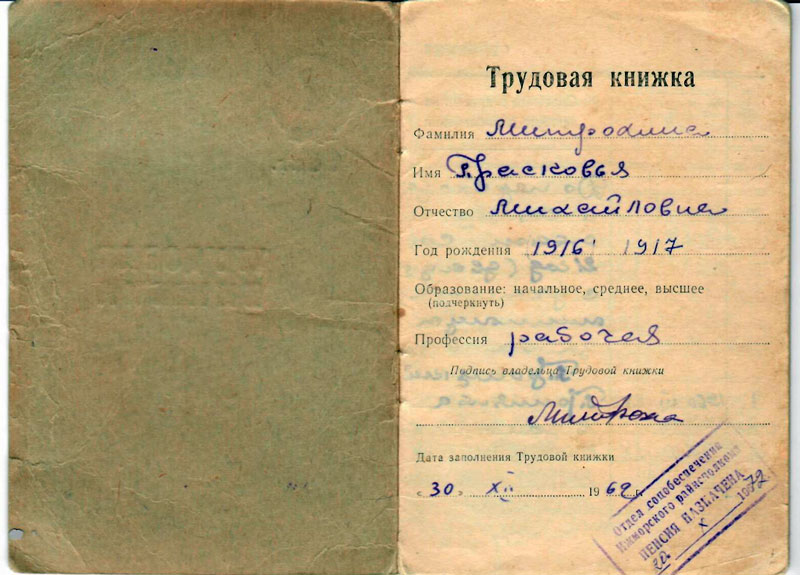 Трудовая книжка
Фамилия Митрохина
Имя Прасковья
Отчество Михайловна
Год рождения 1916 1917
Образование: начальное, среднее, высшее
(подчеркнуть)
Профессия рабочая
Подпись владельца Трудовой книжки
Дата заполнения Трудовой книжки
«30» XII 1962 г.
Отдел соцобеспечения
Ижморского райисполкома
ПЕНСИЯ НАЗНАЧЕНА
X 1972